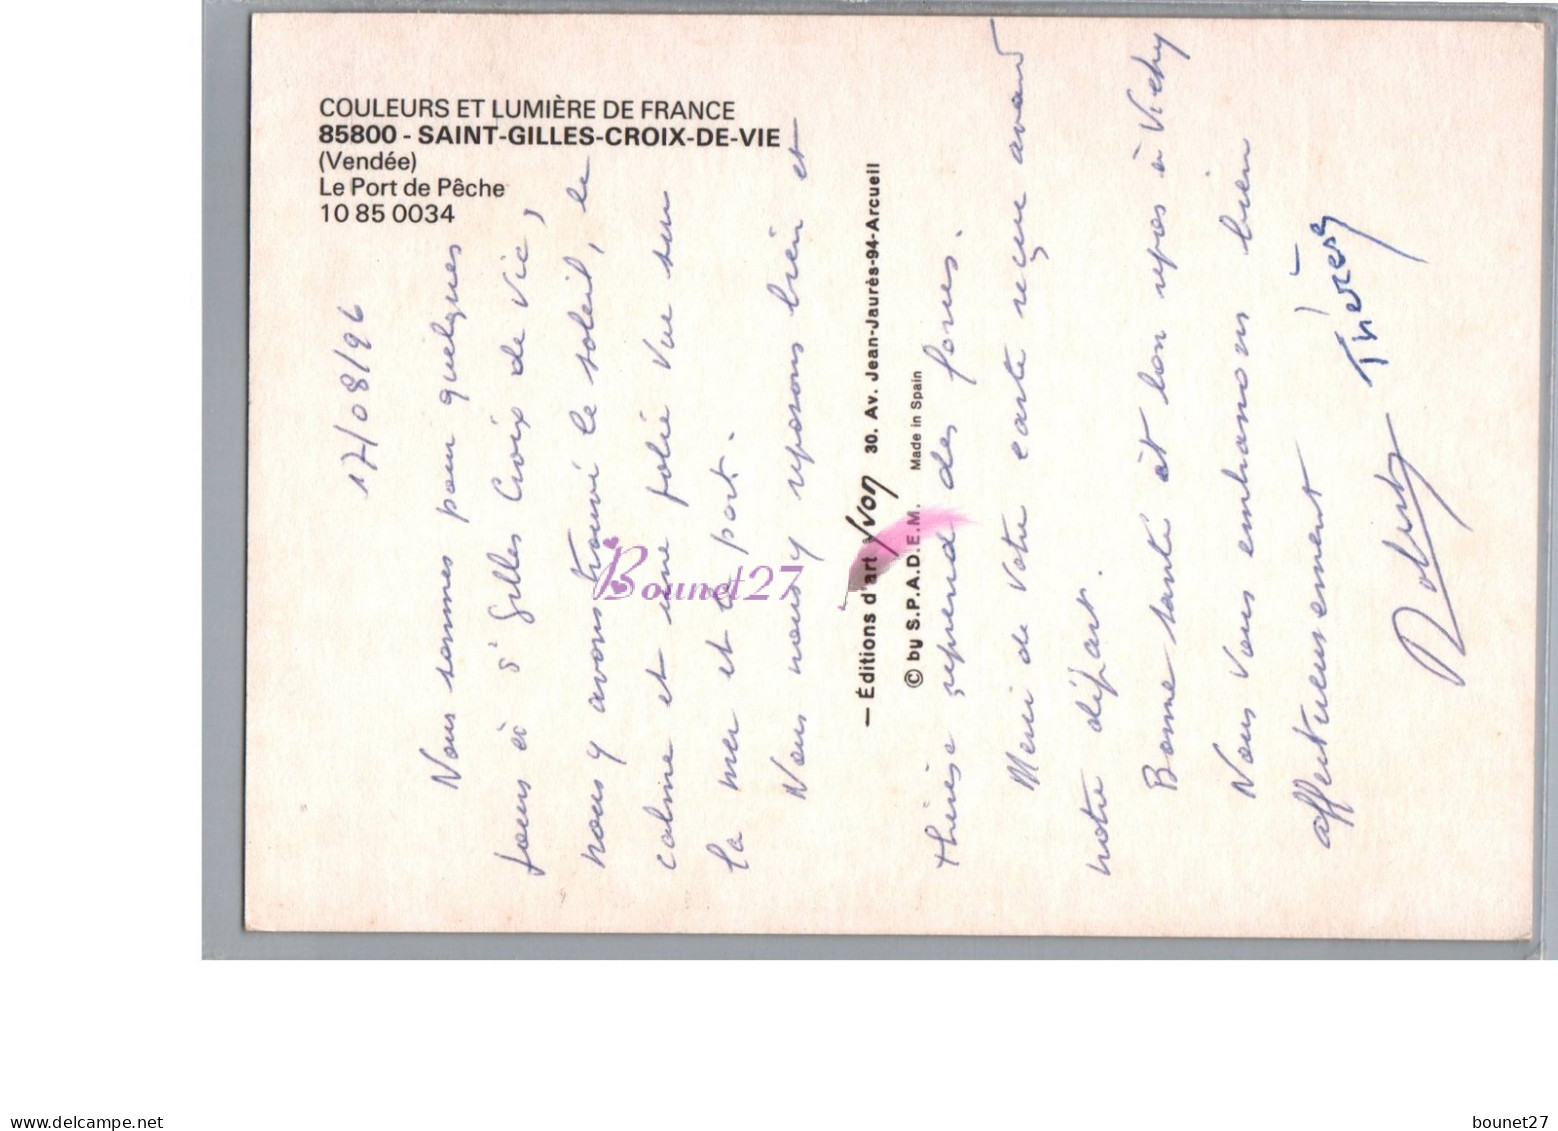 COULEURS ET LUMIÈRE DE FRANCE
85800 - SAINT-GILLES-CROIX-DE-VIE
(Vendée)
Le Port de Pêche
10 85 0034
17/08/96
Nous sommes pour quelques
jours à St Gilles Croix de Vie,
nous y avons trouvé le soleil, le
calme et une jolie vue sur
la mer et le port.
Nous nous y reposons bien et
Thérèse reprend des forces.
Merci de votre carte reçue avant
notre départ.
Bonne santé et bon repos à Vichy
Nous vous embrassons bien
affectueusement
Robert Thérèse
— Éditions d'art Yvon 30. Av. Jean-Jaurès-94-Arcueil
© by S.P.A.D.E.M. Made in Spain
Bounet27
www.delcampe.net
bounet27